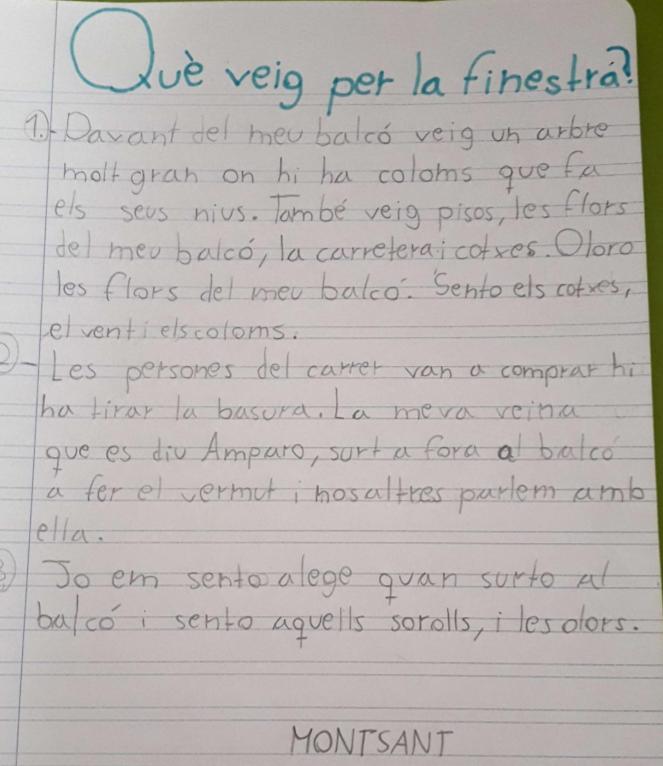 Què veig per la finestra?
1.- Davant del meu balcó veig un arbre
molt gran on hi ha coloms que fa
els seus nius. També veig pisos, les flors
del meu balcó, la carretera i cotxes. Oloro
les flors del meu balcó. Sento els cotxes,
el vent i els coloms.
2- Les persones del carrer van a comprar hi
ha tirar la basura. La meva veina
que es diu Amparo, surt a fora al balcó
a fer el vermut i nosaltres parlem amb
ella.
3) Jo em sento alege quan surto al
balcó i sento aquells sorolls, i les olors.
MONTSANT